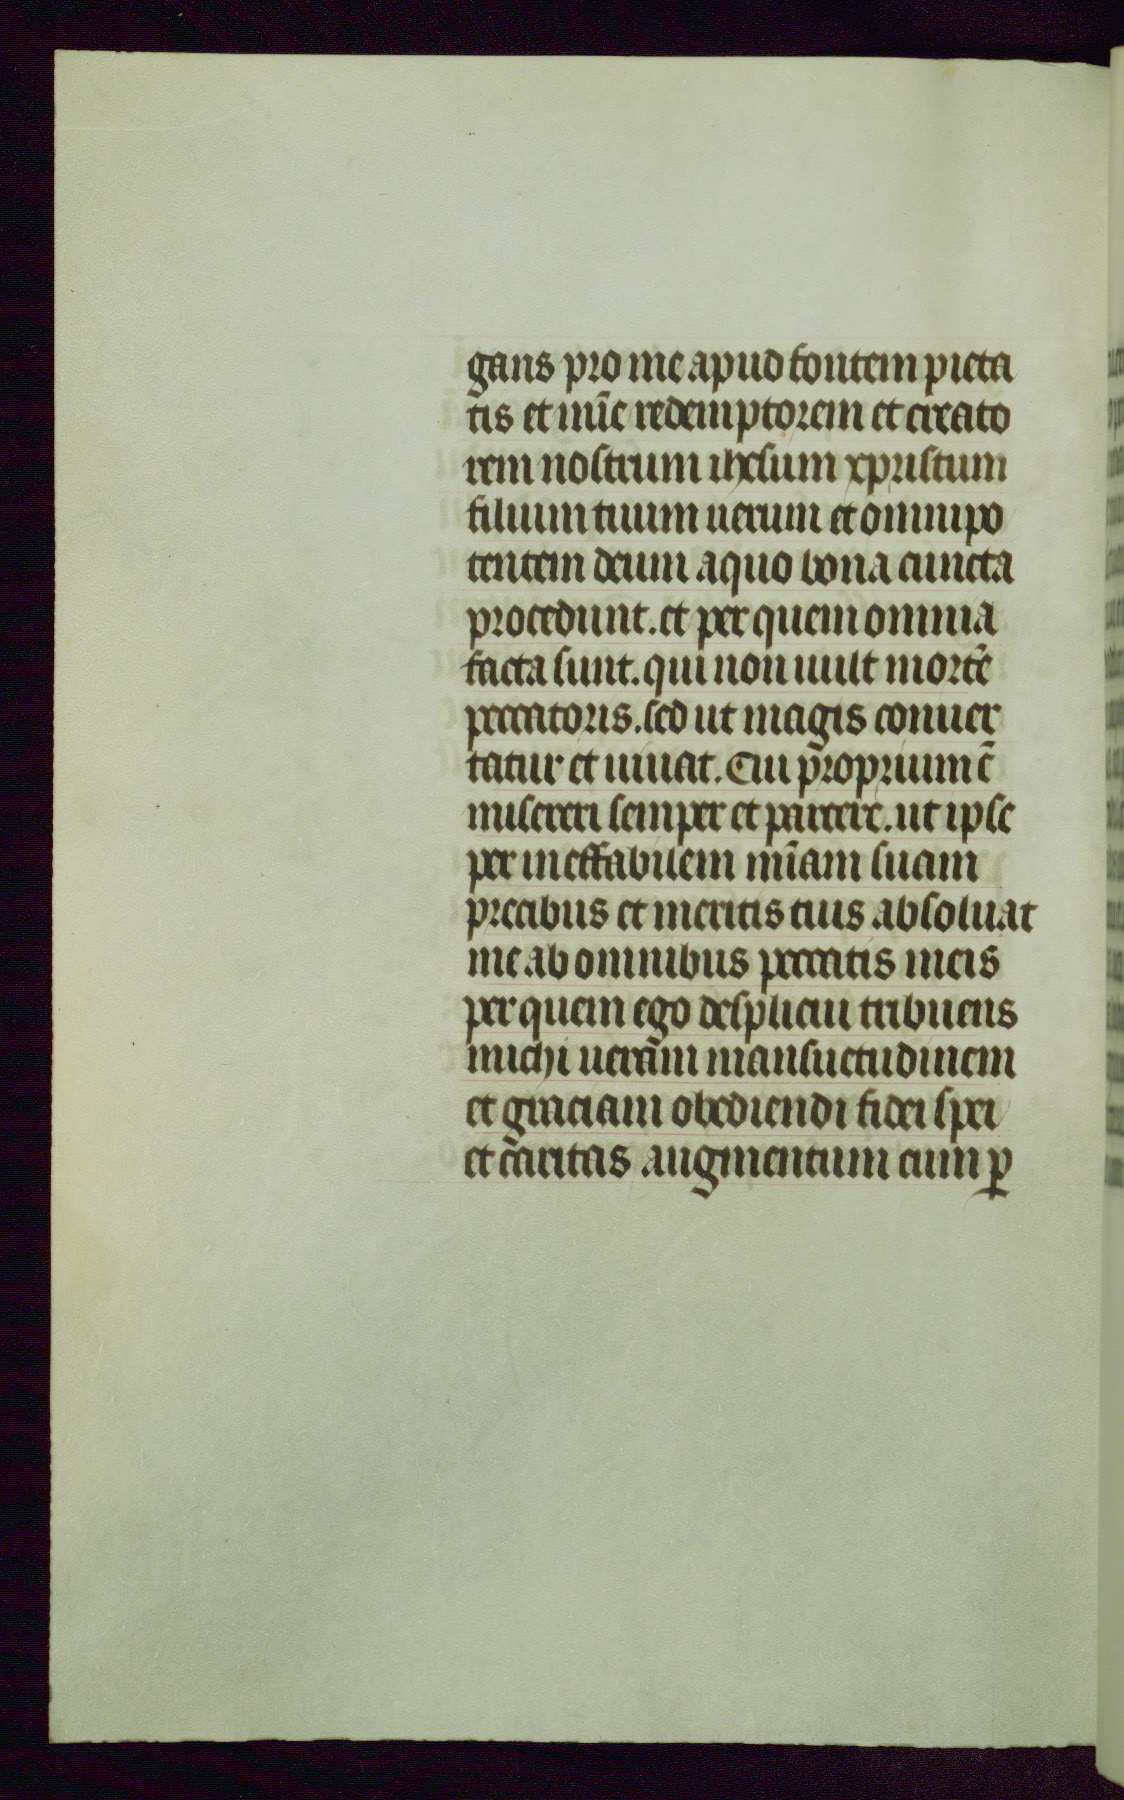 gans pro me apud fontem pieta
tis et mīe redemptorem et creato
rem nostrum ihesum xpristum
filium tuum uerum et omnipo
tentem deum aquo bona cuncta
procedunt. et per quem omnia
facta sunt. qui non uult mortē
peccatoris. sed ut magis conuer
tatur et uiuat. Cui proprium ē
misereri semper et parcere. ut ipse
per ineffabilem mīam suam
precibus et meritis tuis absoluat
me ab omnibus peccatis meis
per quem ego desplicui tribuens
michi ueram mansuetudinem
et graciam obediendi fidei spei
et caritas augmentum cum ꝑ